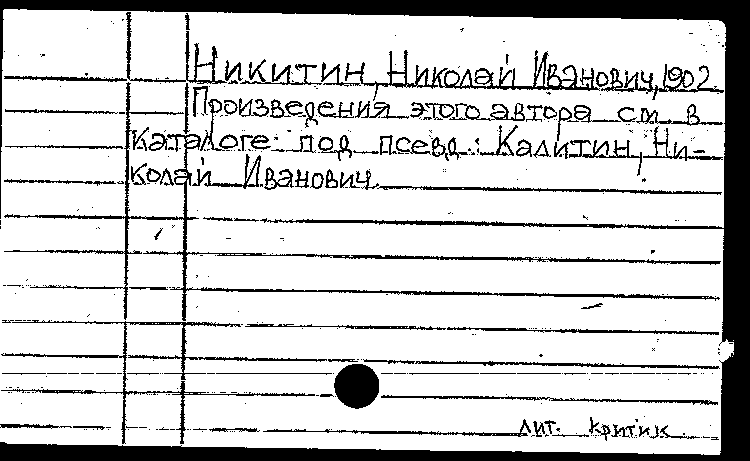 Никитин, Николай Иванович, 1902
Произведения этого автора см. в
каталоге под псевд.: Калитин, Ни-
колай Иванович.
лит. критик